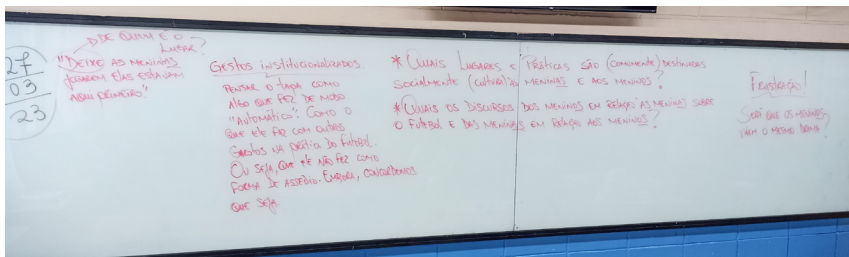 27
03
23
DE QUEM É O
LUGAR?
"DEIXE AS MENINAS
JOGAREM ELAS ESTAVAM
AQUI PRIMEIRO"
GESTOS INSTITUCIONALIZADOS
PENSAR O TAPA COMO
ALGO QUE FEZ DE MODO
"AUTOMÁTICO". COMO O
QUE ELE FEZ COM OUTROS
GAROTOS NA PRÁTICA DO FUTEBOL.
OU SEJA, QUE ELE NÃO FEZ COMO
FORMA DE ASSÉDIO. EMBORA, CONCORDEMOS
QUE SEJA.
* QUAIS LUGARES E PRÁTICAS SÃO (COMUMENTE) DESTINADOS
SOCIALMENTE (CULTURAL) ÀS MENINAS E AOS MENINOS?
* QUAIS OS DISCURSOS DOS MENINOS EM RELAÇÃO ÀS MENINAS SOBRE
O FUTEBOL E DAS MENINAS EM RELAÇÃO AOS MENINOS?
FRUSTRAÇÃO!
SERÁ QUE OS MENINOS
O MESMO DRAMA?